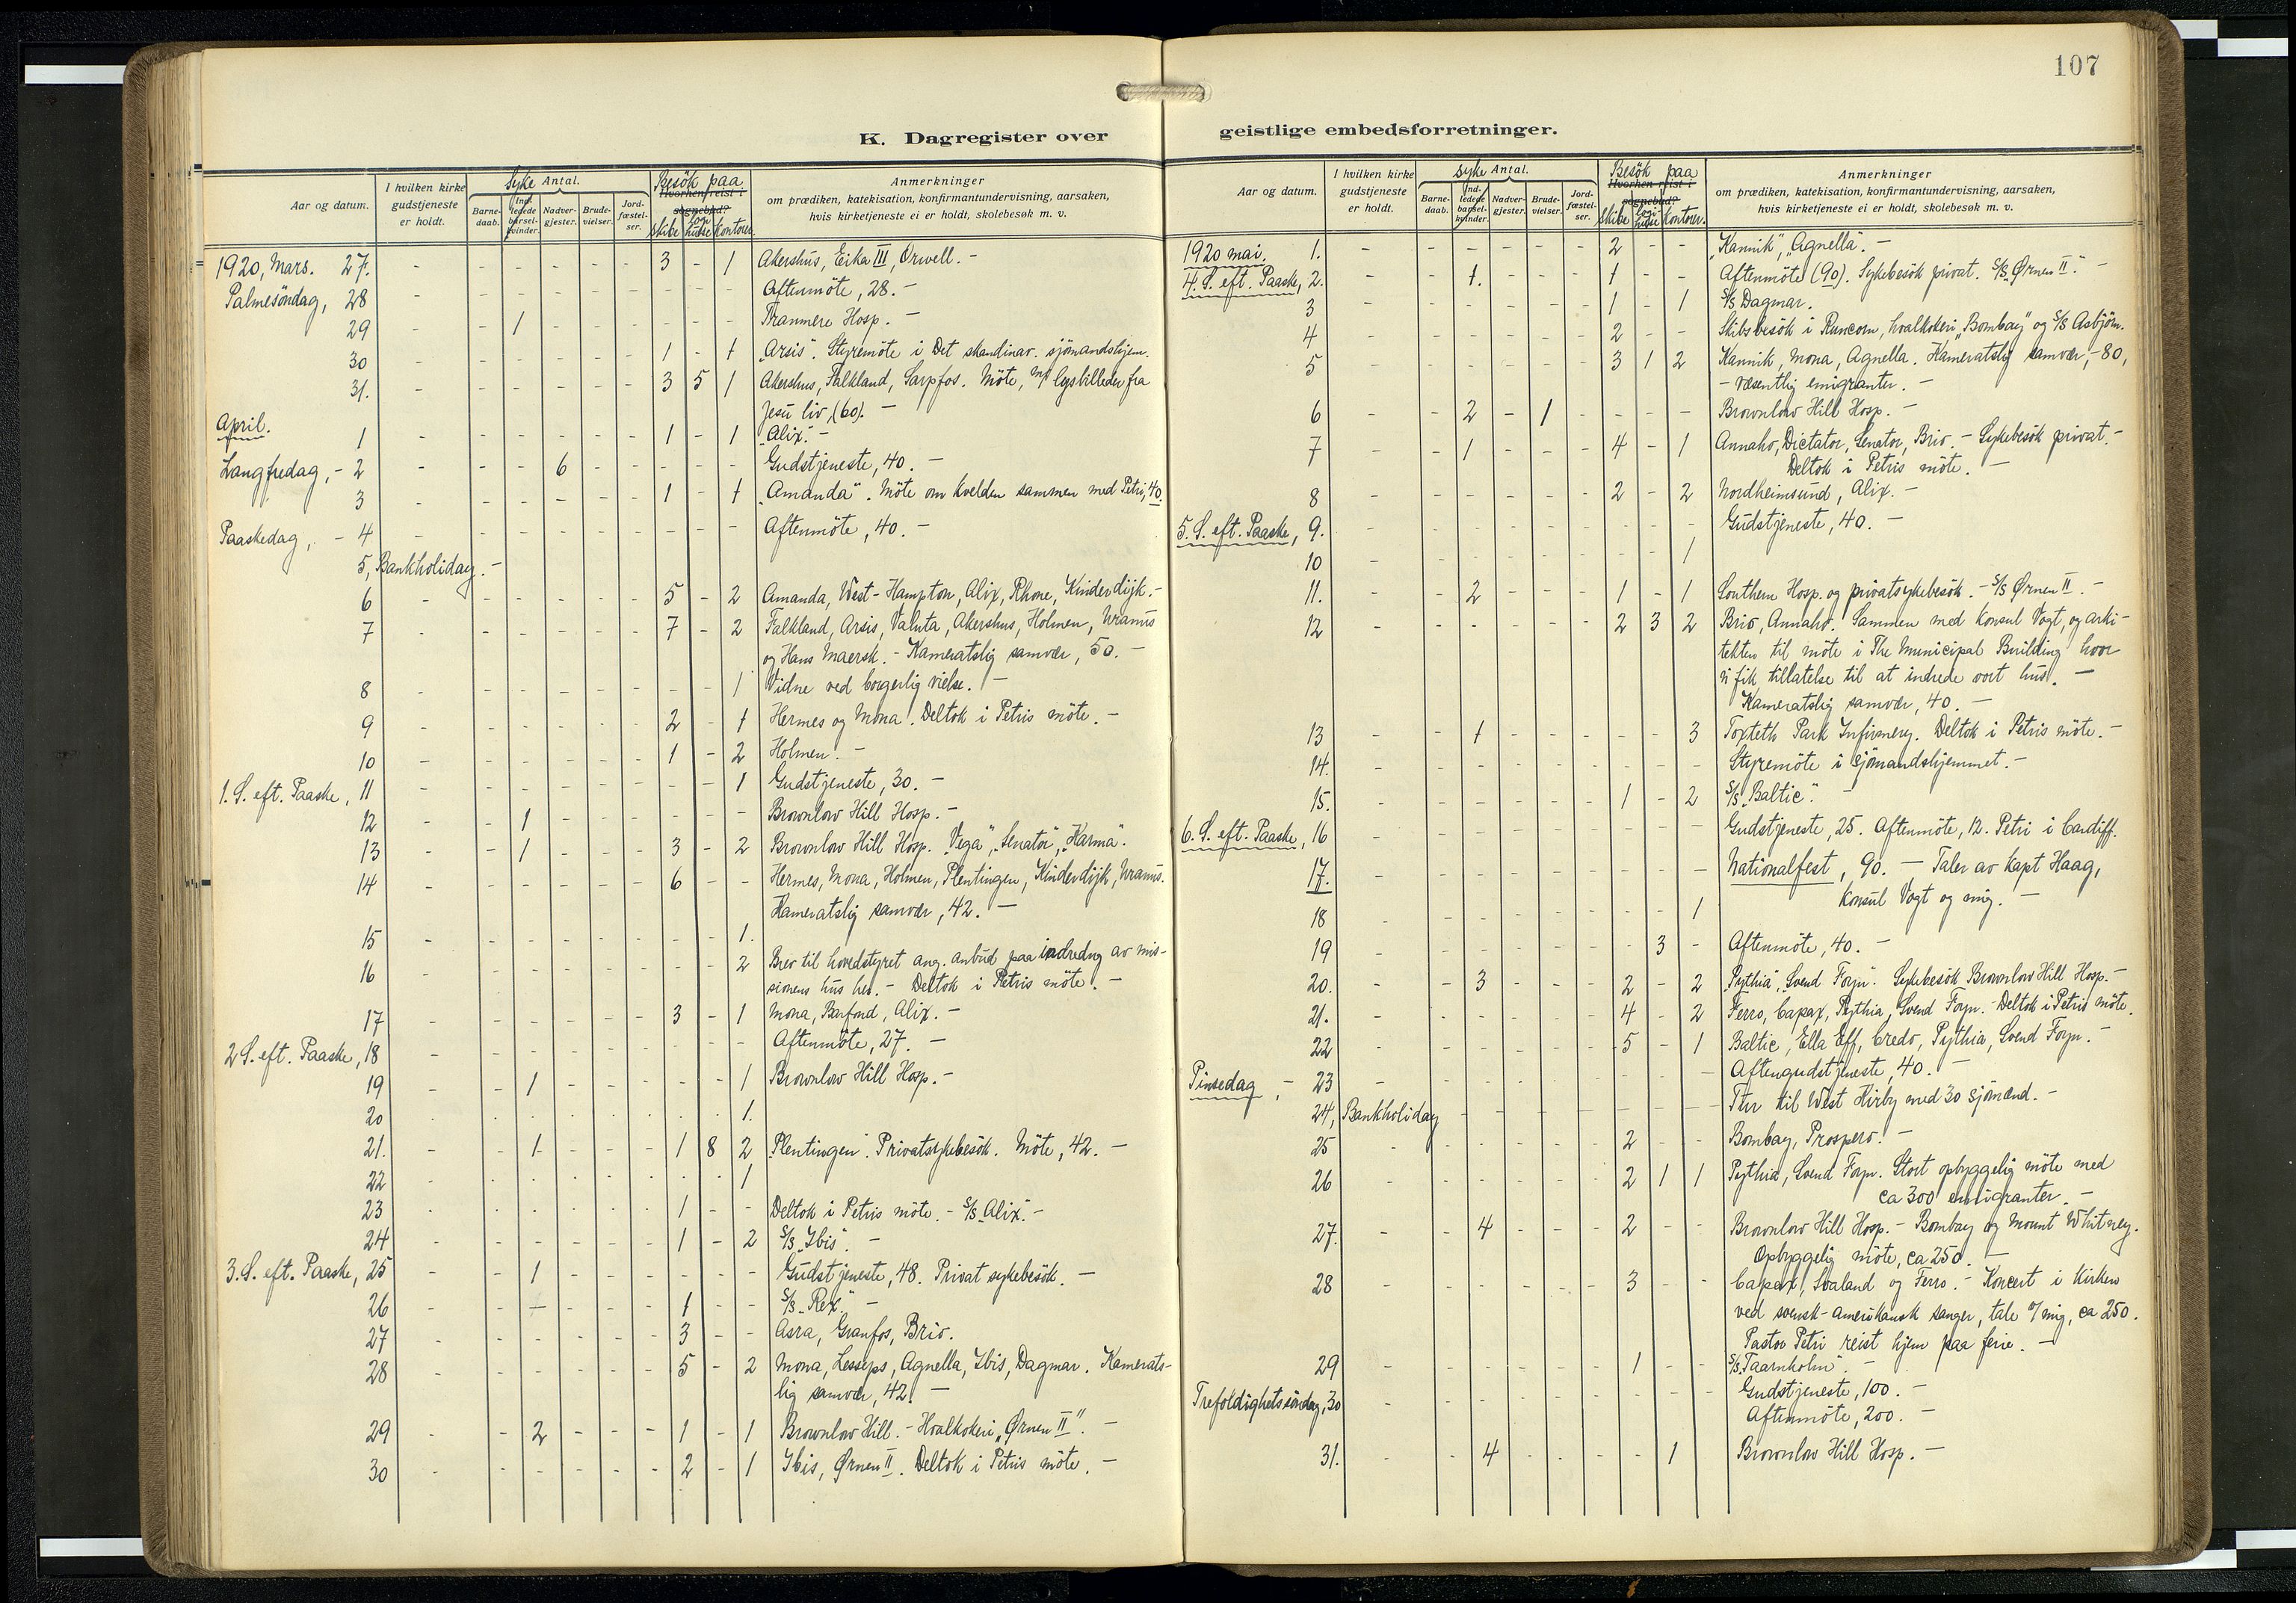 107
K. Dagregister over
Aar og datum. I hvilken kirke gudstjeneste er holdt. Syke Antal. Barne-daab. Ind-ledede barsel-kvinder. Nadver-gjester. Brude-vielser. Jord-fæstel-ser. Besök paa Hvorhen reist i sognebud? skibe logi husse kontorer. Anmerkninger om prædiken, katekisation, konfirmantundervisning, aarsaken, hvis kirketjeneste ei er holdt, skolebesøk m. v.
1920, Mars. 27. - - - - - - 3 - 1 Akershus, Eika III, Orwell. -
Palmesöndag, 28 - - - - - - - - - Aftenmöte, 28. -
29 - - 1 - - - - - - Tranmere Hosp. -
30 - - - - - - 1 - 1 "Arsis". Styremöte i Det skandinav. sjömandshjem.
31. - - - - - - 3 5 1 Akershus, Falkland, Sarpfos. Möte, m/ lysbilleder fra
Jesu liv, (60). -
April.
1 - - - - - - 1 - 1 "Alix". -
Langfredag, - 2 - - - 6 - - - - - Gudstjeneste, 40. -
3 - - - - - - 1 - 1 "Amanda". Möte om kvelden sammen med Petri, 40.
Paaskedag, - 4 - - - - - - - - - Aftenmöte, 40. -
5, Bankholiday. -
6 - - - - - - 5 - 2 Amanda, West-Hampton, Alix, Rhone, Kinderdijk. -
7 - - - - - - 7 - 2 Falkland, Arsis, Valuta, Akershus, Holmen, Uranus
og Hans Maersk. - Kameratslig samvær, 50. -
8 - - - - - - - - 1 Vidne ved borgerlig vielse. -
9 - - - - - - 2 - 1 Hermes og Mona. Deltok i Petris möte. -
10 - - - - - - 1 - 2 Holmen. -
1. S. eft. Paaske, 11 - - - - - - - - 1 Gudstjeneste, 30. -
12 - - 1 - - - - - - Brownlow Hill Hosp. -
13 - - 1 - - - 3 - 2 Brownlow Hill Hosp. "Vega", "Senator", "Karma".
14 - - - - - - 6 - - Hermes, Mona, Holmen, Plentingen, Kinderdijk, Uranus.
Kameratslig samvær, 42. -
15 - - - - - - - - 1.
16 - - - - - - - - 2 Brev til hovedstyret ang. anbud paa indredng av mis-
sionens hus her. - Deltok i Petris möte. -
17 - - - - - - 3 - 1 Mona, Barfond, Alix. -
2 S. eft. Paaske, 18 - - - - - - - - - Aftenmöte, 27. -
19 - - 1 - - - - - 1 Brownlow Hill Hosp. -
20 - - - - - - - - 1.
21. - - 1 - - - 1 8 2 "Plentingen". Privatsykebesök. Möte, 42. -
22 - - - - - - - - 1
23 - - - - - - 1 - - Deltok i Petris möte. - S/S "Alix". -
24 - - - - - - 1 - 2 S/S "Ibis". -
3. S. eft. Paaske, 25 - - 1 - - - - - - Gudstjeneste, 48. Privat sykebesök. -
26 - - - - - - 1 - - S/S "Rex". -
27 - - - - - - 3 - - Asra, Granfos, Brio.
28 - - - - - - 5 - 2 Mona, Lesseps, Agnella, Ibis, Dagmar. Kamerats-
lig samvær, 42. -
29 - - 2 - - - 1 - 1 Brownlow Hill. - Hvalkokeri "Ørnen II". -
30 - - - - - - 2 - 1 Ibis, Ørnen II. Deltok i Petris möte. -
geistlige embedsforretninger.
Aar og datum. I hvilken kirke gudstjeneste er holdt. Syke Antal. Barne-daab. Ind-ledede barsel-kvinder. Nadver-gjester. Brude-vielser. Jord-fæstel-ser. Besök paa Hvorhen reist i sognebud? skibe logi husse kontorer. Anmerkninger om prædiken, katekisation, konfirmantundervisning, aarsaken, hvis kirketjeneste ei er holdt, skolebesøk m. v.
1920 mai. 1. - - - - - - 2 - - "Kannik", "Agnella". -
4. S. eft. Paaske, 2. - - 1. - - - 1 - - Aftenmöte (90). Sykebesök privat. S/S "Ørnen II". -
3 - - - - - - 1 - 1 S/S Dagmar.
4 - - - - - - 2 - - Skibsbesök i Runcorn, hvalkokeri "Bombay" og S/S Asbjörn.
5 - - - - - - 3 1 2 Kannik, Mona, Agnella. Kameratslig samvær, - 80,
- væsentlig emigranter. -
6 - - 2 - 1 - - - - Brownlow Hill Hosp. -
7 - - 1 - - - 4 - 1 Annaho, Dictator, Senator, Brio. - Sykebesök privat. -
Deltok i Petris möte. -
8 - - - - - - 2 - 2 Nordheimsund, Alix. -
5. S. eft. Paaske, 9. - - - - - - - - - Gudstjeneste, 40. -
10 - - - - - - - - 1
11. - - 2 - - - 1 - 1 Southern Hosp. og privatsykebesök. - S/S Ørnen II. -
12 - - - - - - 2 3 2 Brio, Annaho. Sammen med konsul Vogt, og arki-
tekten til möte i The Municipal Building hvor
vi fik tillatelse til at indrede vort hus. -
Kameratslig samvær, 40. -
13 - - 1 - - - - - 3 Toxteth Park Infirmery. Deltok i Petris möte. -
14. - - - - - - - - - Styremöte i sjömandshjemmet. -
15. - - - - - - 1 - 2 S/S "Baltic". -
6. S. eft. Paaske, 16 - - - - - - - - - Gudstjeneste, 25. Aftenmöte, 12. Petri i Cardiff.
17. - - - - - - - - - Nationalfest, 90. - Taler av Kapt Haag,
Konsul Vogt og mig. -
18 - - - - - - - - 1
19 - - - - - - - 3 - Aftenmöte, 40. -
20. - - 3 - - - 2 - 2 "Pythia", "Svend Foyn". Sykebesök Brownlow Hill Hosp. -
21. - - - - - - 4 - 2 Ferro, Capax, Pythia, Svend Foyn. - Deltok i Petris möte.
22 - - - - - - 5 - 1 Baltic, Ella Eff, Credo, Pythia, Svend Foyn. -
Pinsedag, - 23 - - - - - - - - - Aftengudstjeneste, 40. -
24, Bankholiday - - - - - - - - Tur til West Kirby med 30 sjömænd. -
25 - - - - - - 2 - - Bombay, Prospero. -
26 - - - - - - 2 1 1 Pythia, Svend Foyn. Stort opbyggelig möte med
ca 300 emigranter. -
27. - - 4 - - - 2 - - Brownlow Hill Hosp. - Bombay og Mount Whitney.
Opbyggelig möte, ca 250. -
28 - - - - - - 3 - - Capax, Svaland og Ferro. - Koncert i kirken
ved svensk-amerikansk sanger, tale v/ mig, ca 250.
Pastor Petri reist hjem paa ferie. -
29 - - - - - - 1 - - S/S "Taarnholm". -
Trefoldighetssöndag, 30 - - - - - - - - - Gudstjeneste, 100. -
Aftenmöte, 200. -
31. - - 4 - - - - 1 Brownlow Hill Hosp. -